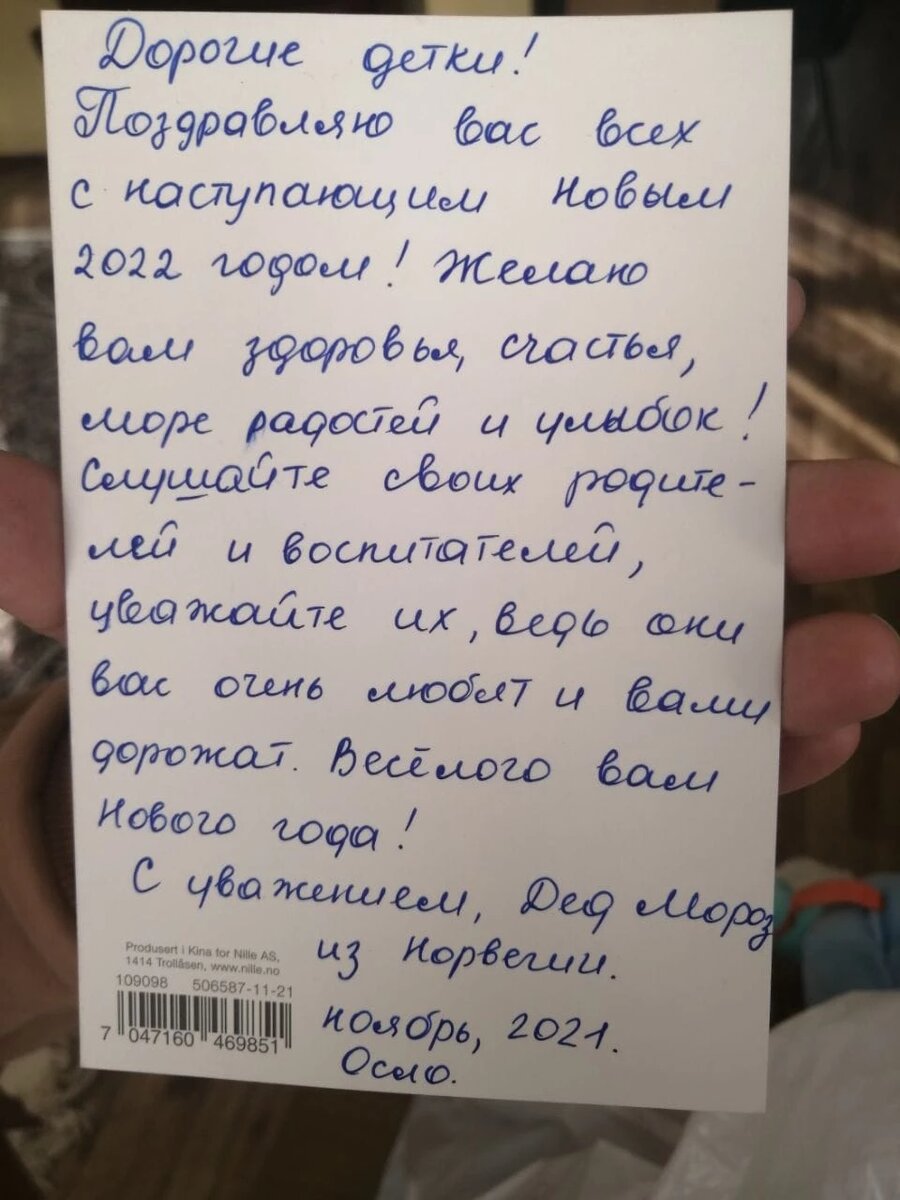 Дорогие детки!
Поздравляю вас всех
с наступающим новым
2022 годом! Желаю
вам здоровья, счастья,
море радостей и улыбок!
Слушайте своих родите-
лей и воспитателей,
уважайте их, ведь они
вас очень любят и вами
дорожат. Весёлого вам
Нового года!
С уважением, Дед Мороз
из Норвегии.
ноябрь, 2021.
Осло.
Produsert i Kina for Nille AS,
1414 Trollåsen, www.nille.no
109098 506587-11-21
7 047160 469851